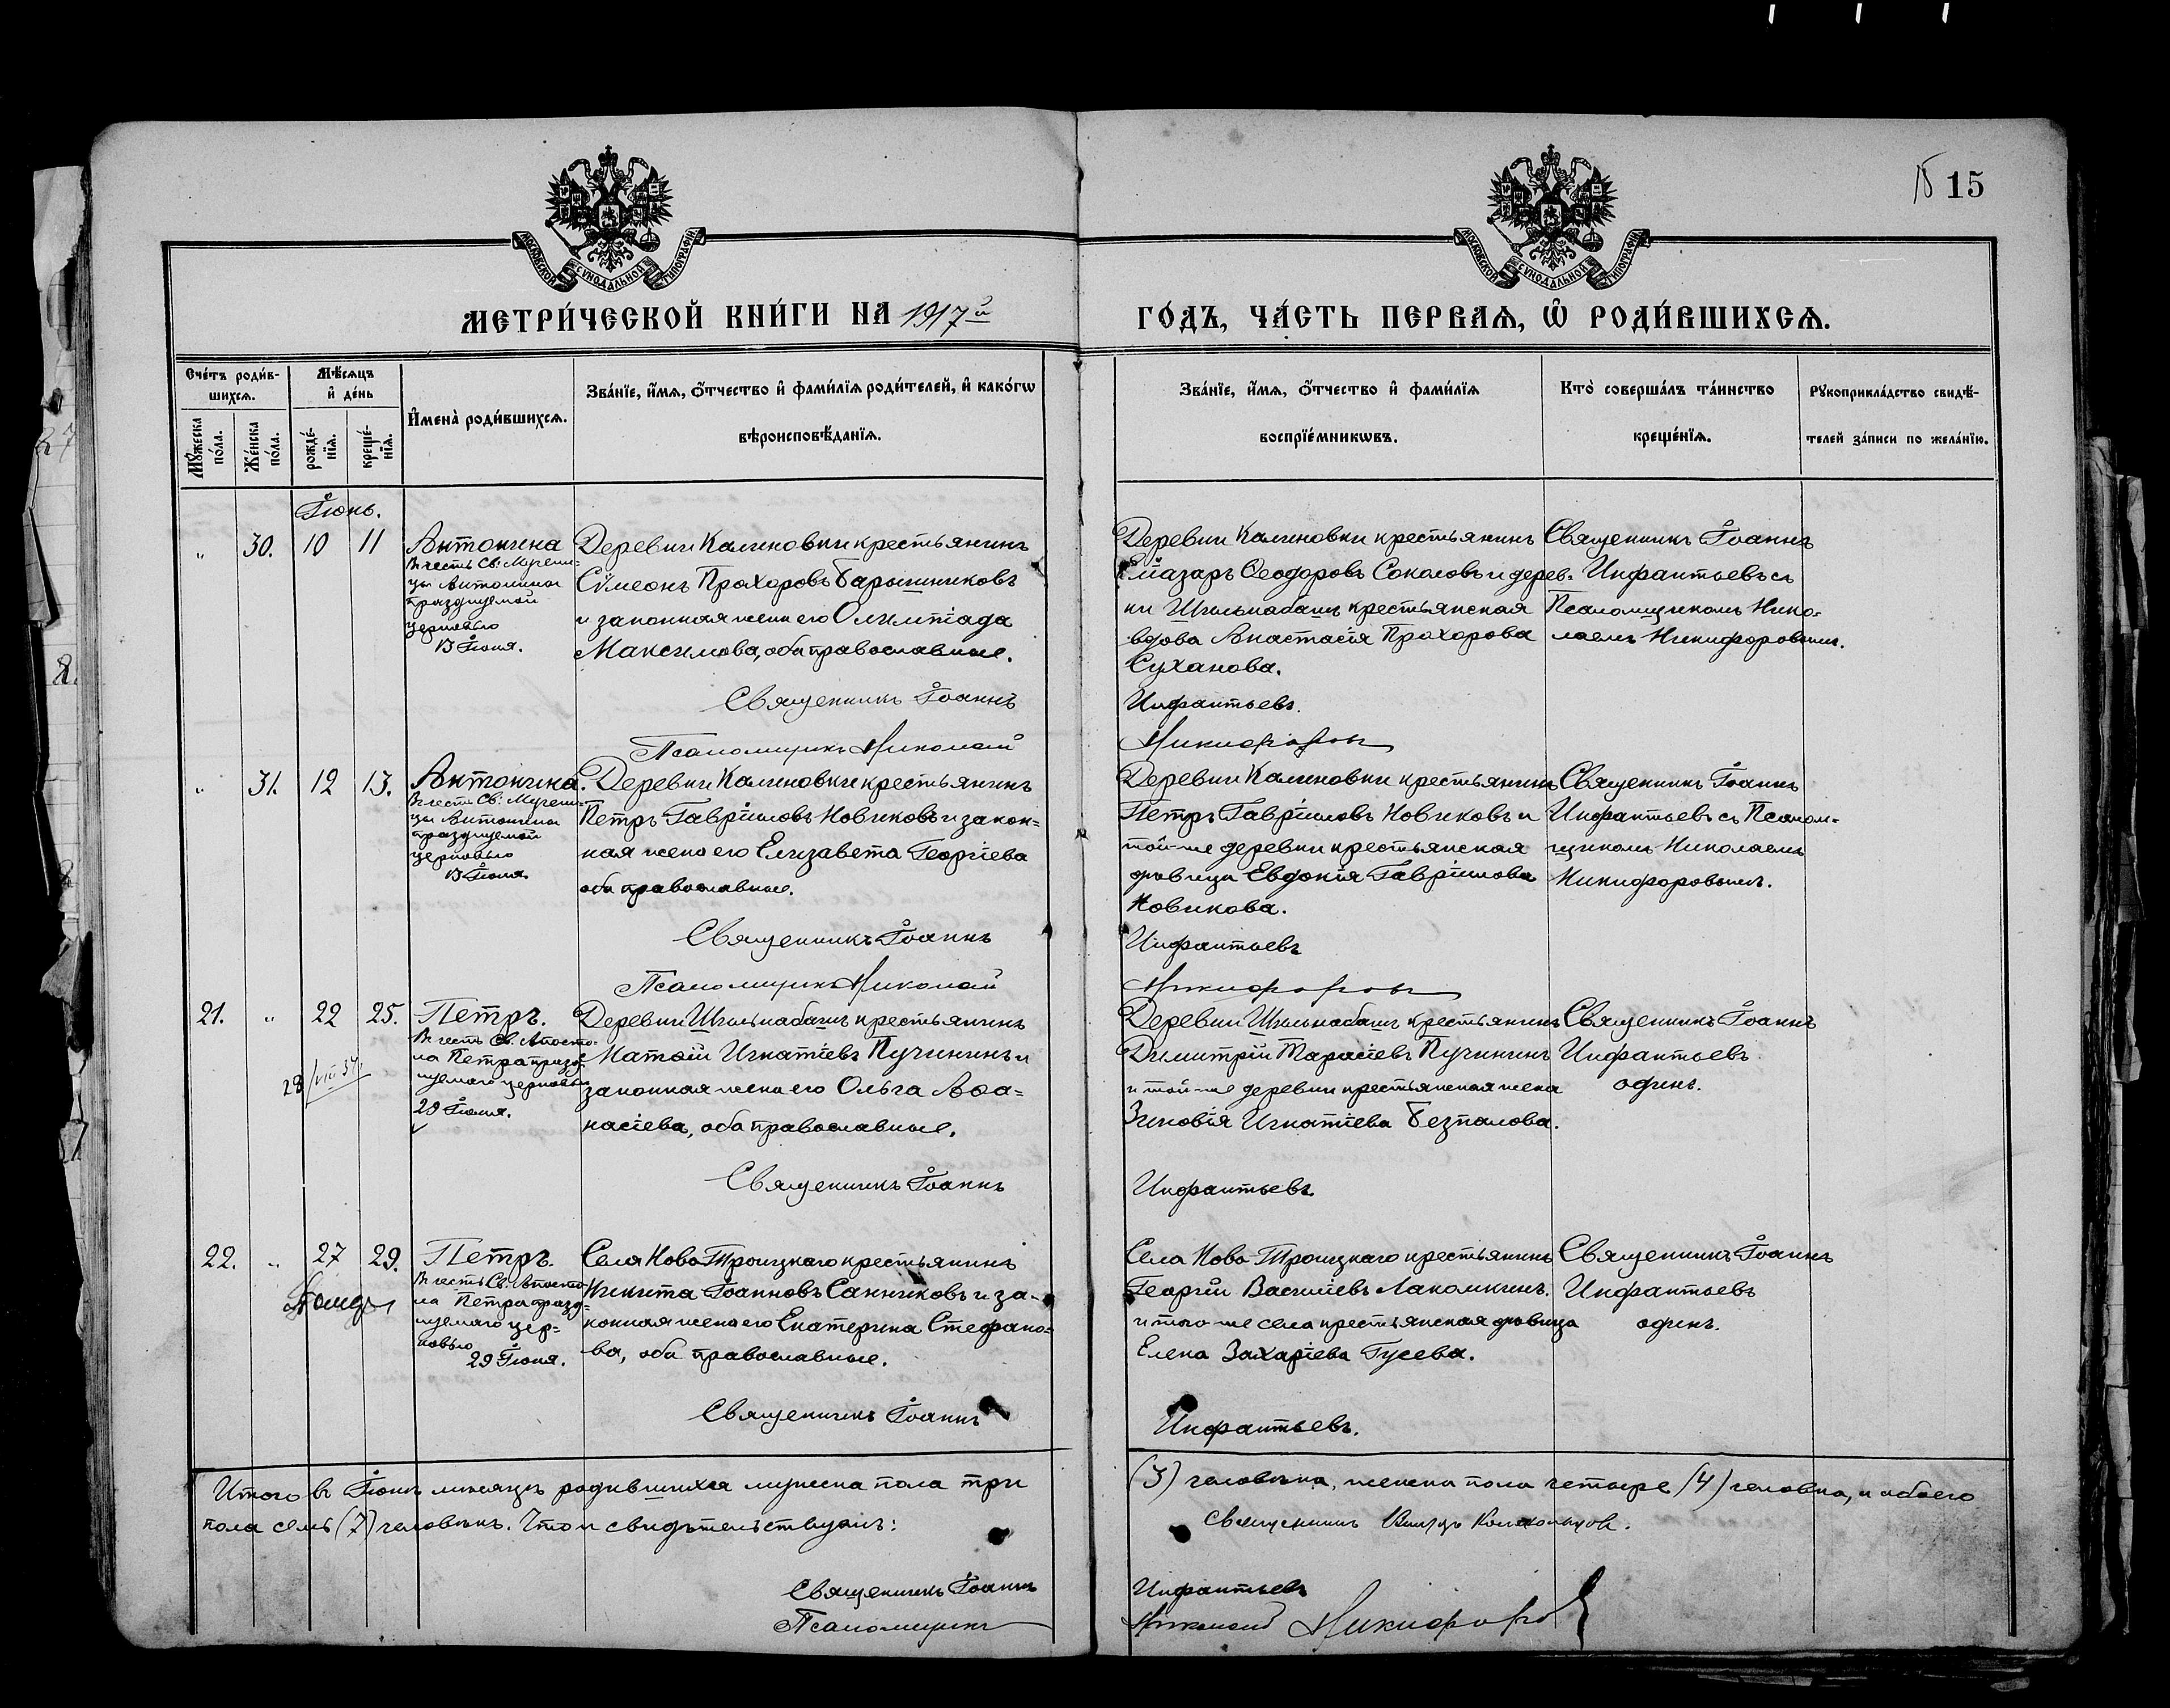 15 15
МОСКОВСКОЙ СѴНОДАЛЬНОЙ ТИПОГРАФІИ
МОСКОВСКОЙ СѴНОДАЛЬНОЙ ТИПОГРАФІИ
МЕТРИ́ЧЕСКОЙ КНИ́ГИ НА 1917й
ГО́ДЪ, ЧА́СТЬ ПЕРВАѦ, Ѽ РОДИ́ВШИХСѦ.
Сче́тъ роди́в-
шихсѧ.
Мꙋ́жеска по́ла.
Же́нска по́ла.
Мѣ́сѧцъ
и҆ де́нь
рожде́-
нїѧ.
креще́-
нїѧ.
И҆мена̀ роди́вшихсѧ.
Зва́нїе, и҆́мѧ, ѻ҆́тчество и҆ фами́лїѧ роди́телей, и҆ како́гѡ
вѣроисповѣ́данїѧ.
Зва́нїе, и҆́мѧ, ѻ҆́тчество и҆ фами́лїѧ
воспрїе́мникѡвъ.
Кто̀ соверша́лъ та́инство
креще́нїѧ.
Рꙋкоприкла́дство свидѣ́-
телей за́писи по жела́нїю.
Іюнь.
" 30. 10 11
Антонина
Въ честь Св: Мучени-
цы Антонины
празднуемой
церковью
13 Іюня.
Деревни Калиновки крестьянинъ
Сѵмеонъ Прохоровъ Барышниковъ
и законная жена его Олимпіада
Максимова, оба православные.
Священникъ Іоаннъ
Псаломщикъ Николай
Деревни Калиновки крестьянинъ
Елiазаръ Ѳеодоровъ Соколовъ и дерев-
ни крестьянская
вдова Анастасія Прохорова
Суханова.
Инфантьевъ.
Никифоровъ
Священникъ Іоаннъ
Инфантьевъ съ
Псаломщикомъ Нико-
лаемъ Никифоровымъ.
" 31. 12 13.
Антонина.
Въ честь Св: Мучени-
цы Антонины
празднуемой
церковью
13 Іюня.
Деревни Калиновки крестьянинъ
Петръ Гавріиловъ Новиковъ и закон=
ная жена его Елизавета Георгіева
оба православные.
Священникъ Іоаннъ
Псаломщикъ Николай
Деревни Калиновки крестьянинъ
Петръ Гавріиловъ Новиковъ и
той-же деревни крестьянская
дѣвица Евдокія Гавріилова
Новикова.
Инфантьевъ
Никифоровъ
Священникъ Іоаннъ
Инфантьевъ съ Псалом-
щикомъ Николаемъ
Никифоровымъ.
21. " 22 25.
28/VIII 37
Петръ.
Въ честь Св. Апосто-
ла Петра празд-
нуемаго церковью
29 Іюня.
Деревни крестьянинъ
Матѳій Игнатіевъ Пучининъ и
законная жена его Ольга Аѳа=
насіева, оба православные.
Священникъ Іоаннъ
Деревни крестьянинъ
Димитрій Тарасіевъ Пучининъ
и той-же деревни крестьянская жена
Зиновія Игнатіева Безпалова.
Инфантьевъ
Священникъ Іоаннъ
Инфантьевъ
одинъ.
22. " 27 29.
Петръ.
Въ честь Св. Апосто-
ла Петра празд=
нуемаго цер=
ковью
29 Іюня.
Села Ново-Троицкаго крестьянинъ
Никита Іоанновъ Санниковъ и за-
конная жена его Екатерина Стефано=
ва, оба православные.
Священникъ Іоаннъ
Села Ново-Троицкаго крестьянинъ
Георгій Василіевъ Лакомкинъ.
и того-же села крестьянская дѣвица
Елена Захаріева Гусева.
Инфантьевъ.
Священникъ Іоаннъ
Инфантьевъ
одинъ.
Итого въ Іюнѣ мѣсяцѣ родившихся мужеска пола три
(3) человѣка, женска пола четыре (4) человѣка, и обоего
пола семь (7) человѣкъ. Что и свидѣтельствуемъ:
Священникъ
Священникъ Іоаннъ
Инфантьевъ
Псаломщикъ
Николай Никифоровъ